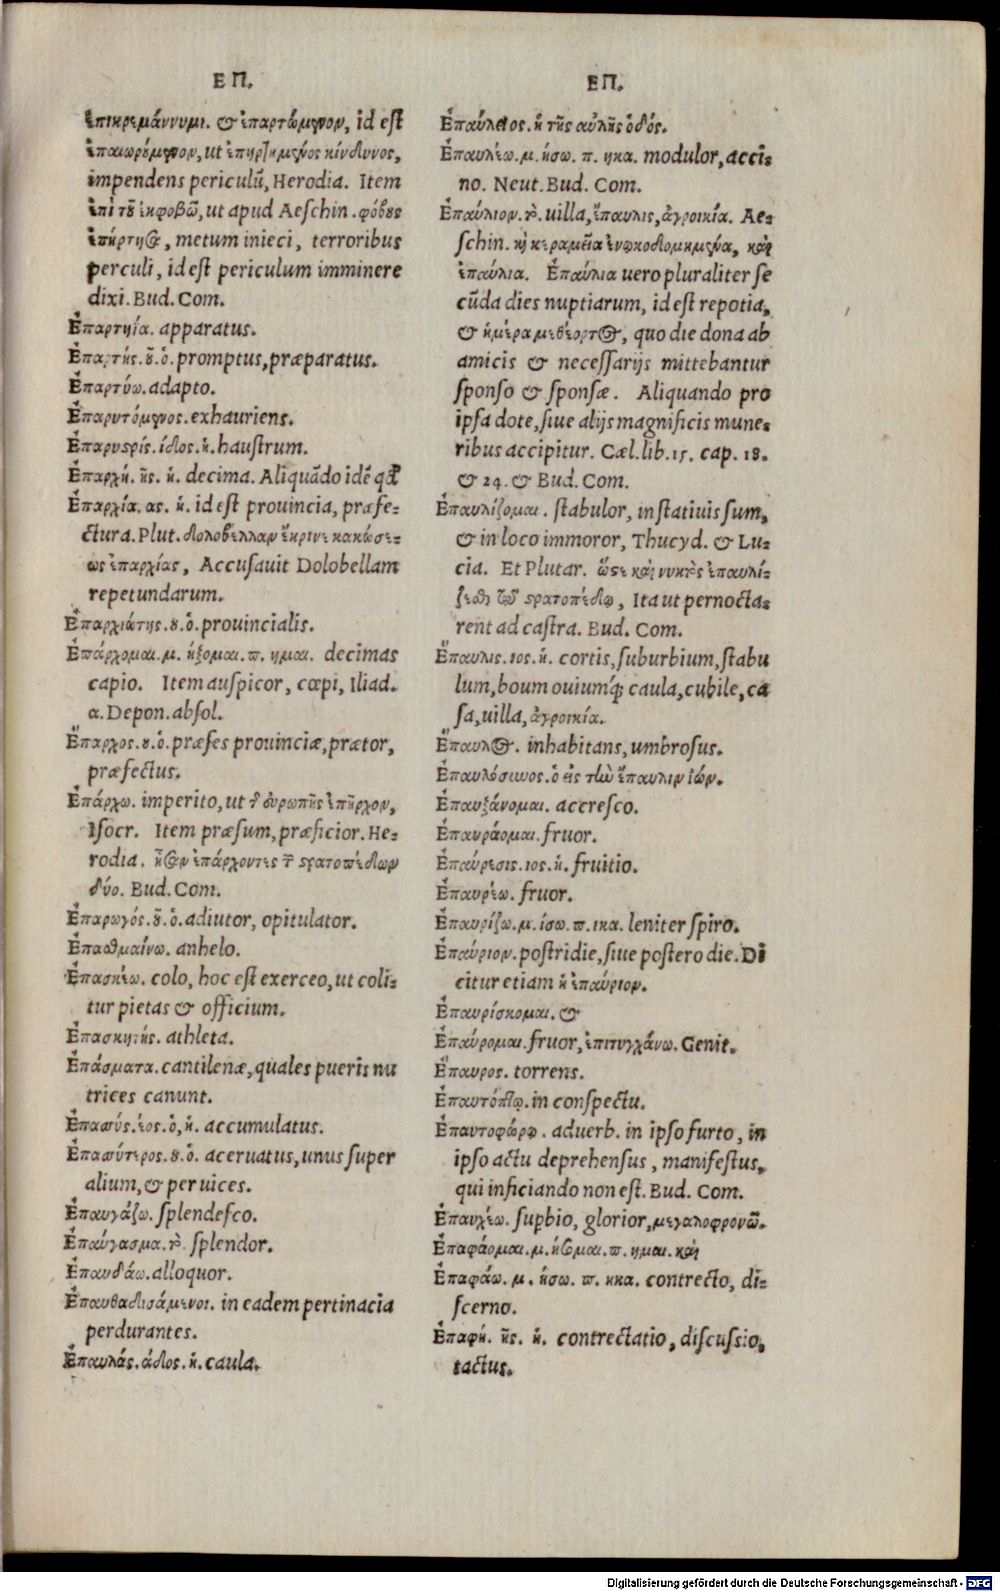 ΕΠ.
ἐπικρεμάννυμι. & ἐπαρτώμενον, id est
ἐπαιωρούμενον, ut ἐπηρτημένος κίνδυνος,
impendens periculũ, Herodia. Item
ἐπὶ τοῦ ἐκφοβῶ, ut apud Aeschin. φόβους
ἐπήρτησε, metum inieci, terroribus
perculi, id est periculum imminere
dixi. Bud. Com.
Ἐπαρτηία. apparatus.
Ἐπαρτής. οῦ. ὁ. promptus, præparatus.
Ἐπαρτύω. adapto.
Ἐπαρυτόμενος. exhauriens.
Ἐπαρυστρίς. ίδος. ἡ. haustrum.
Ἐπαρχή. ῆς. ἡ. decima. Aliquãdo idẽ qđ
Ἐπαρχία. ας. ἡ. id est prouincia, præfe-
ctura. Plut. δολοβέλλαν ἔκρινε κακώσε-
ως ἐπαρχίας, Accusauit Dolobellam
repetundarum.
Ἐπαρχιώτης. ου. ὁ. prouincialis.
Ἐπάρχομαι. μ. ήξομαι. π. ημαι. decimas
capio. Item auspicor, cœpi, Iliad.
α. Depon. absol.
Ἔπαρχος. ου. ὁ. præses prouinciæ, prætor,
præfectus.
Ἐπάρχω. imperito, ut τῆς εὐρώπης ἐπῆρχον,
Isocr. Item præsum, præficior. He-
rodia. ἦσαν ἐπάρχοντες τῶν στρατοπέδων
δύο. Bud. Com.
Ἐπαρωγός. οῦ. ὁ. adiutor, opitulator.
Ἐπασθμαίνω. anhelo.
Ἐπασκέω. colo, hoc est exerceo, ut coli-
tur pietas & officium.
Ἐπασκητής. athleta.
Ἐπάσματα. cantilenæ, quales pueris nu
trices canunt.
Ἐπασσύς. έος. ὁ, ἡ. accumulatus.
Ἐπασσύτερος. ου. ὁ. aceruatus, unus super
alium, & per uices.
Ἐπαυγάζω. splendesco.
Ἐπαύγασμα. τὸ. splendor.
Ἐπαυδάω. alloquor.
Ἐπαυθαδισάμενοι. in eadem pertinacia
perdurantes.
Ἐπαυλάς. άδος. ἡ. caula.
ΕΠ.
Ἐπαύλειος. ἡ τῆς αὐλῆς ὁδός.
Ἐπαυλέω. μ. ήσω. π. ηκα. modulor, acci-
no. Neut. Bud. Com.
Ἐπαύλιον. τὸ. uilla, ἔπαυλις, ἀγροικία. Ae-
schin. καὶ κεραμεῖα ἐνῳκοδομημένα, καὶ
ἐπαύλια. Ἐπαύλια uero pluraliter se
cũda dies nuptiarum, id est repotia,
& ἡμέρα μεθέορτος, quo die dona ab
amicis & necessarijs mittebantur
sponso & sponsæ. Aliquando pro
ipsa dote, siue alijs magnificis mune-
ribus accipitur. Cæl. lib. 15. cap. 18.
& 24. & Bud. Com.
Ἐπαυλίζομαι. stabulor, in statiuis sum,
& in loco immoror, Thucyd. & Lu-
cia. Et Plutar. ὥστε καὶ νυκτὸς ἐπαυλί-
ζεσθαι τῷ στρατοπέδῳ, Ita ut pernocta-
rent ad castra. Bud. Com.
Ἔπαυλις. ιος. ἡ. cortis, suburbium, stabu
lum, boum ouiumq́; caula, cubile, ca
sa, uilla, ἀγροικία.
Ἔπαυλος. inhabitans, umbrosus.
Ἐπαυλόσυνος. ὁ εἰς τὴν ἔπαυλιν ἰών.
Ἐπαυξάνομαι. accresco.
Ἐπαυράομαι. fruor.
Ἐπαύρεσις. ιος. ἡ. fruitio.
Ἐπαυρέω. fruor.
Ἐπαυρίζω. μ. ίσω. π. ικα. leniter spiro.
Ἐπαύριον. postridie, siue postero die. Di
citur etiam ἡ ἐπαύριον.
Ἐπαυρίσκομαι. &
Ἐπαύρομαι. fruor, ἐπιτυγχάνω. Genit.
Ἔπαυρος. torrens.
Ἐπαυτόπτῳ. in conspectu.
Ἐπαυτοφώρῳ. aduerb. in ipso furto, in
ipso actu deprehensus, manifestus,
qui inficiando non est. Bud. Com.
Ἐπαυχέω. supbio, glorior, μεγαλοφρονῶ.
Ἐπαφάομαι. μ. ήσομαι. π. ημαι. καὶ
Ἐπαφάω. μ. ήσω. π. ηκα. contrecto, di-
scerno.
Ἐπαφή. ῆς. ἡ. contrectatio, discussio,
tactus.
Digitalisierung gefördert durch die Deutsche Forschungsgemeinschaft - DFG